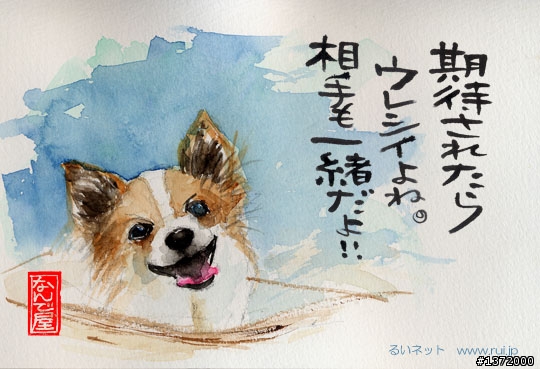 期待されたら
ウレシイよね。
相手も一緒だよ!!
なんで屋
るいネット www.rui.jp
#1372000